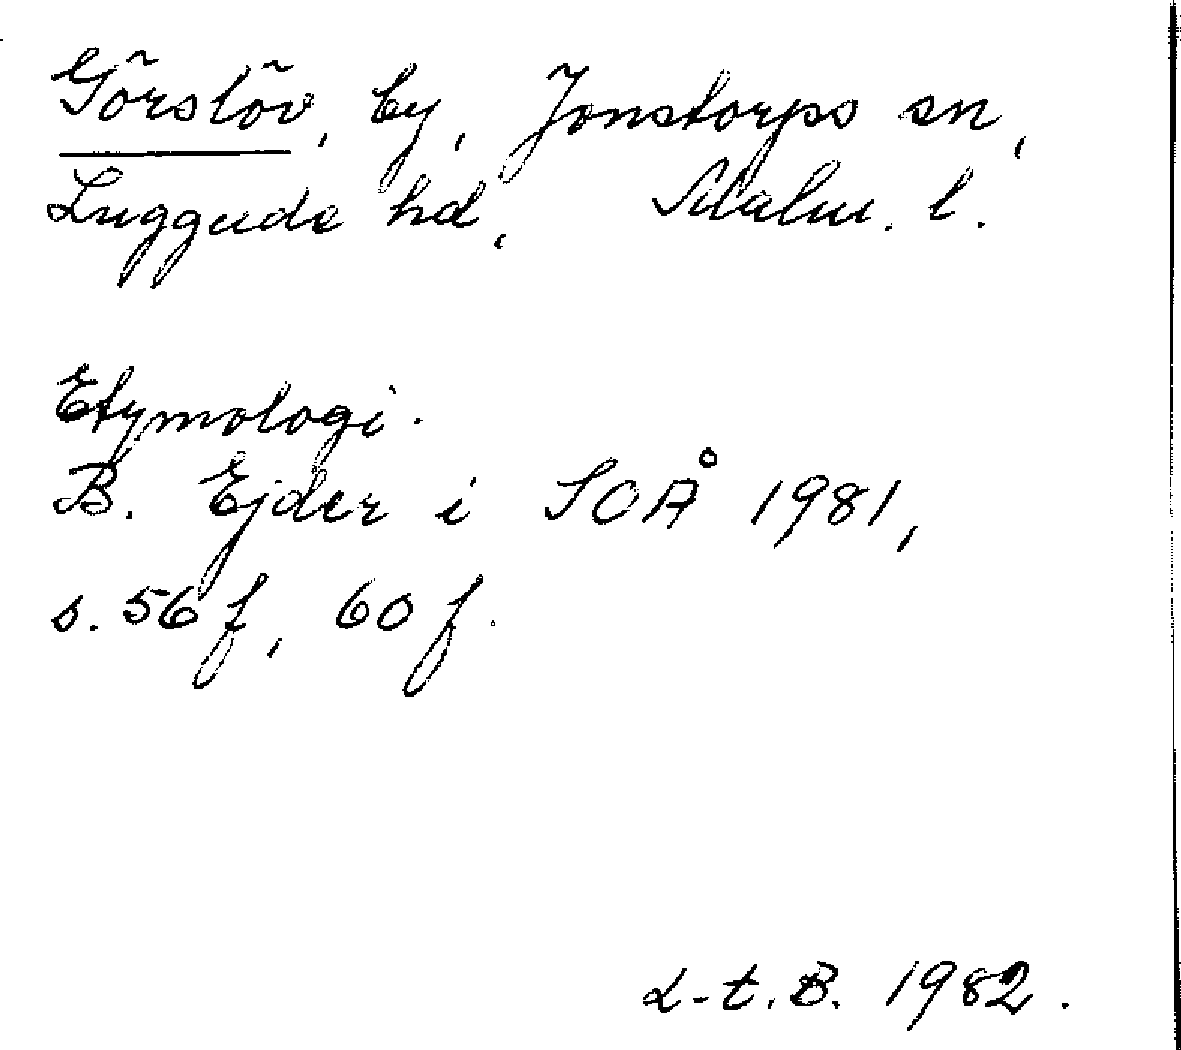 Görslöv, by, Jonstorps sn,
Luggude hd, Malm. l.
Etymologi.
B. Ejder i SOÅ 1981,
s. 56 f, 60 f.
L-t. B. 1982.